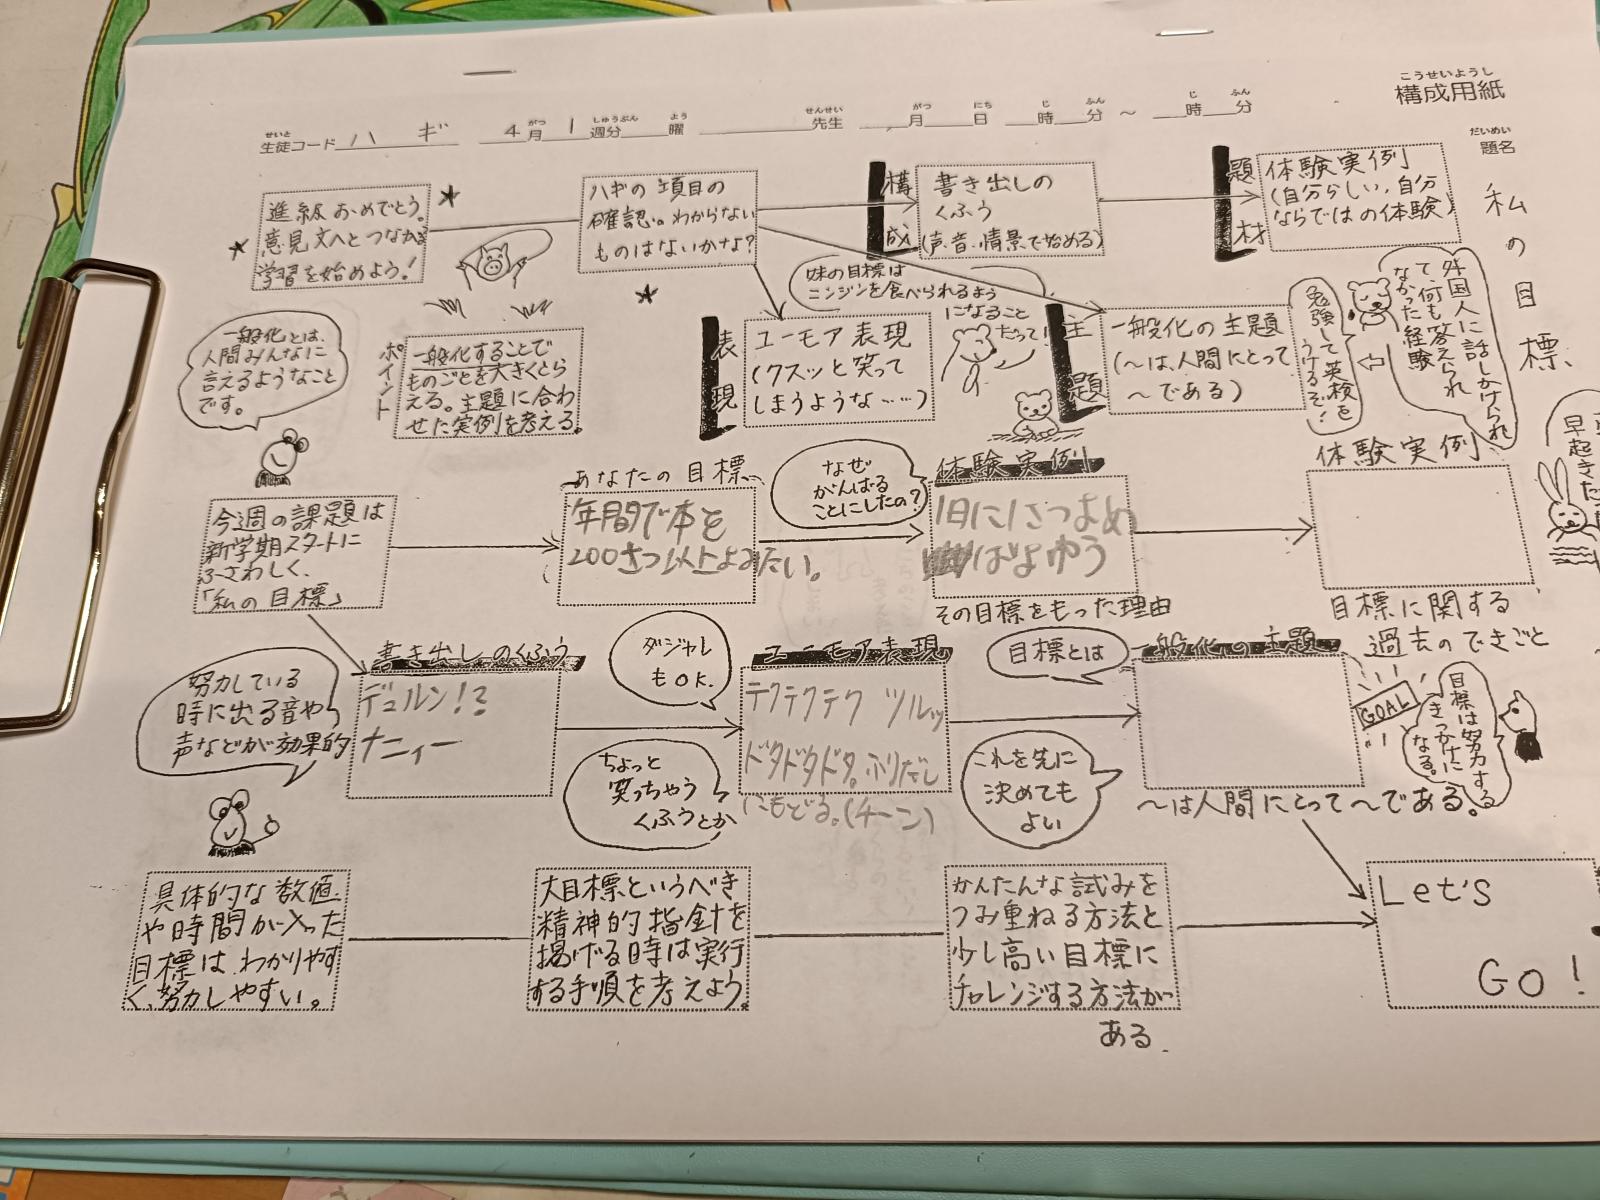 こうせいようし
構成用紙
せいと がつ しゅうぶん よう せんせい がつ にち じ ふん じ ふん
生徒コード ハギ 4月 1週分 曜 先生 月 日 時 分 ～ 時 分
だいめい
題名
私の目標、
進級おめでとう。
意見文へとつながる
学習を始めよう!
ハギの項目の
確認。わからない
ものはないかな?
構成
書き出しの
くふう
(声、音、情景で始める)
題材
体験実例
(自分らしい、自分
ならではの体験)
一般化とは、
人間みんなに
言えるようなこと
です。
ポイント
一般化することで
ものごとを大きくとら
える。主題に合わ
せた実例を考える。
表現
ユーモア表現
(クスッと笑って
しまうような……)
妹の目標は
ニンジンを食べられるよう
になること
だって!
主題
一般化の主題
(～は、人間にとって
～である)
外国人に話しかけられ
て、何も答えられ
なかった経験
勉強して英検を
うけるぞ!
早起き
今週の課題は
新学期スタートに
ふさわしく、
「私の目標」
あなたの目標、
年間で本を
200さつ以上よみたい。
なぜ
がんばる
ことにしたの?
体験実例
1日に1さつよめ
ばよゆう
その目標をもった理由
体験実例
目標に関する
過去のできごと
努力している
時に出る音や
声などが効果的
書き出しのくふう
デュルン!?
ナニィー
ダジャレ
もOK.
ちょっと
笑っちゃう
くふうとか
ユーモア表現
テクテクテク ツルッ
ドタドタドタ。ふりだし
にもどる。(チーン)
目標とは
これを先に
決めても
よい
一般化の主題
～は人間にとって～である。
GOAL
目標は努力する
きっかけに
なる。
具体的な数値
や時間が入った
目標は、わかりやす
く、努力しやすい。
大目標というべき
精神的指針を
掲げる時は実行
する手順を考えよう。
かんたんな試みを
つみ重ねる方法と
少し高い目標に
チャレンジする方法が
ある.
Let's
GO!